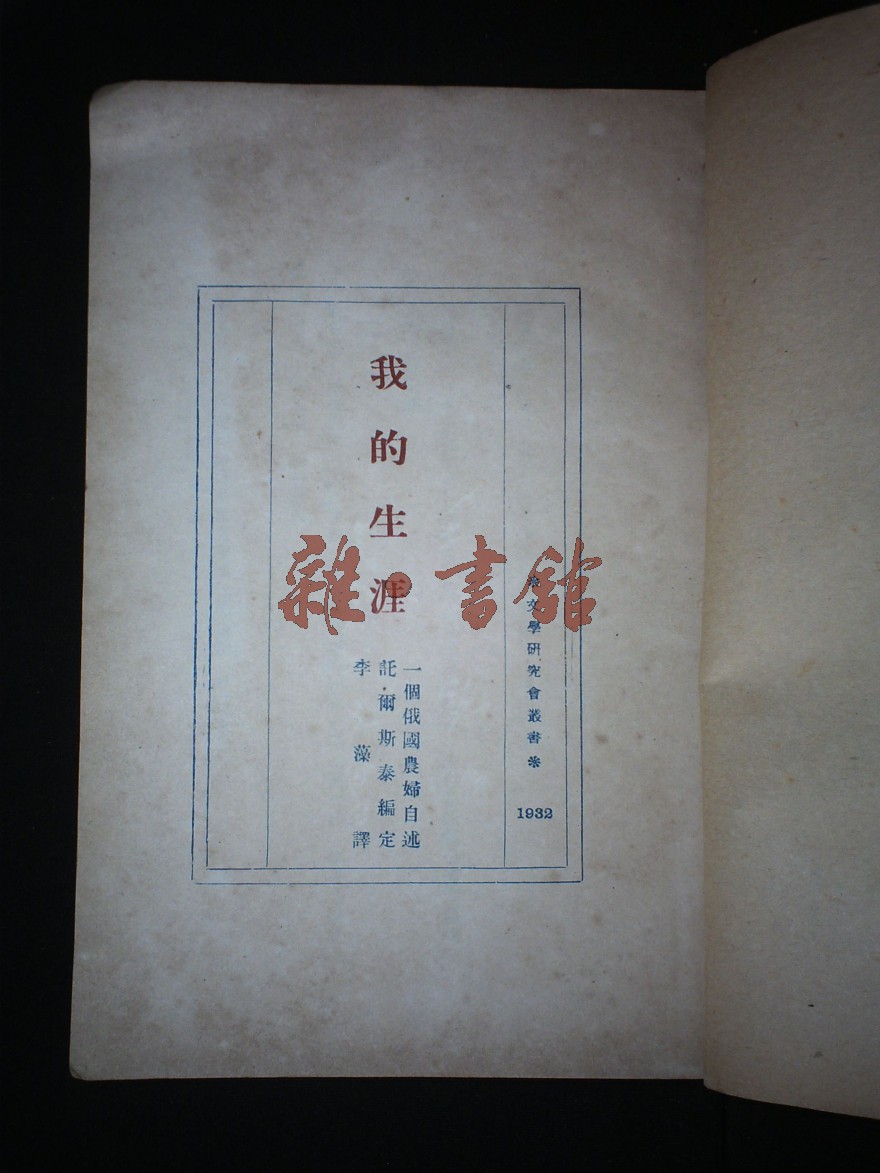 ※文學研究會叢書※
1932
我的生涯
一個俄國農婦自述
託·爾斯泰編定
李藻譯
雜·書館